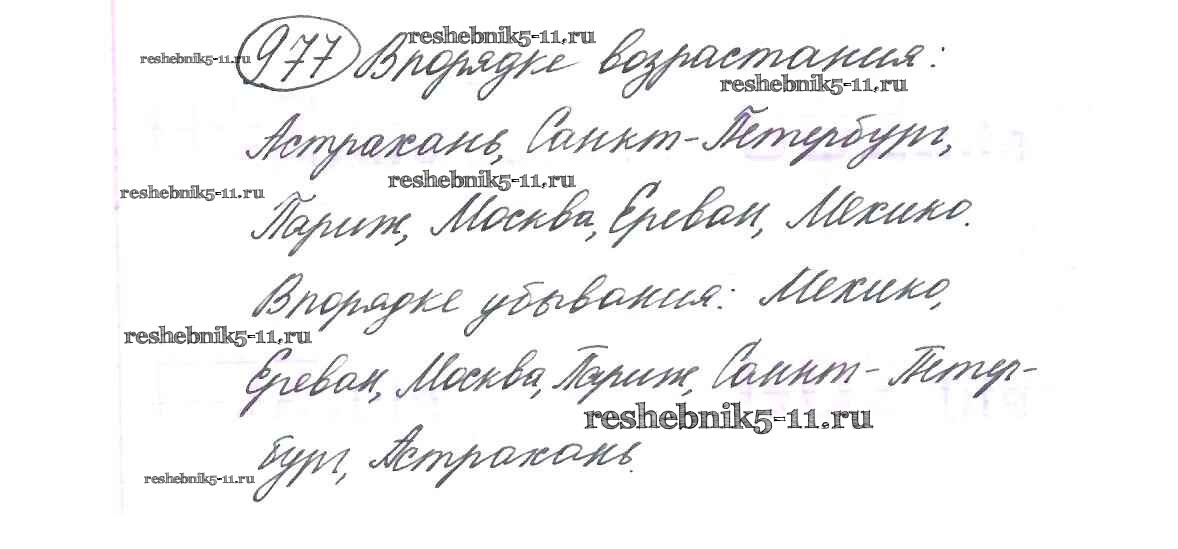 reshebnik5-11.ru
977 В порядке возрастания:
reshebnik5-11.ru
reshebnik5-11.ru
Астрахань, Санкт-Петербург,
reshebnik5-11.ru
reshebnik5-11.ru
Париж, Москва, Ереван, Мехико.
В порядке убывания: Мехико,
reshebnik5-11.ru
Ереван, Москва, Париж, Санкт-Петер-
reshebnik5-11.ru
бург, Астрахань.
reshebnik5-11.ru